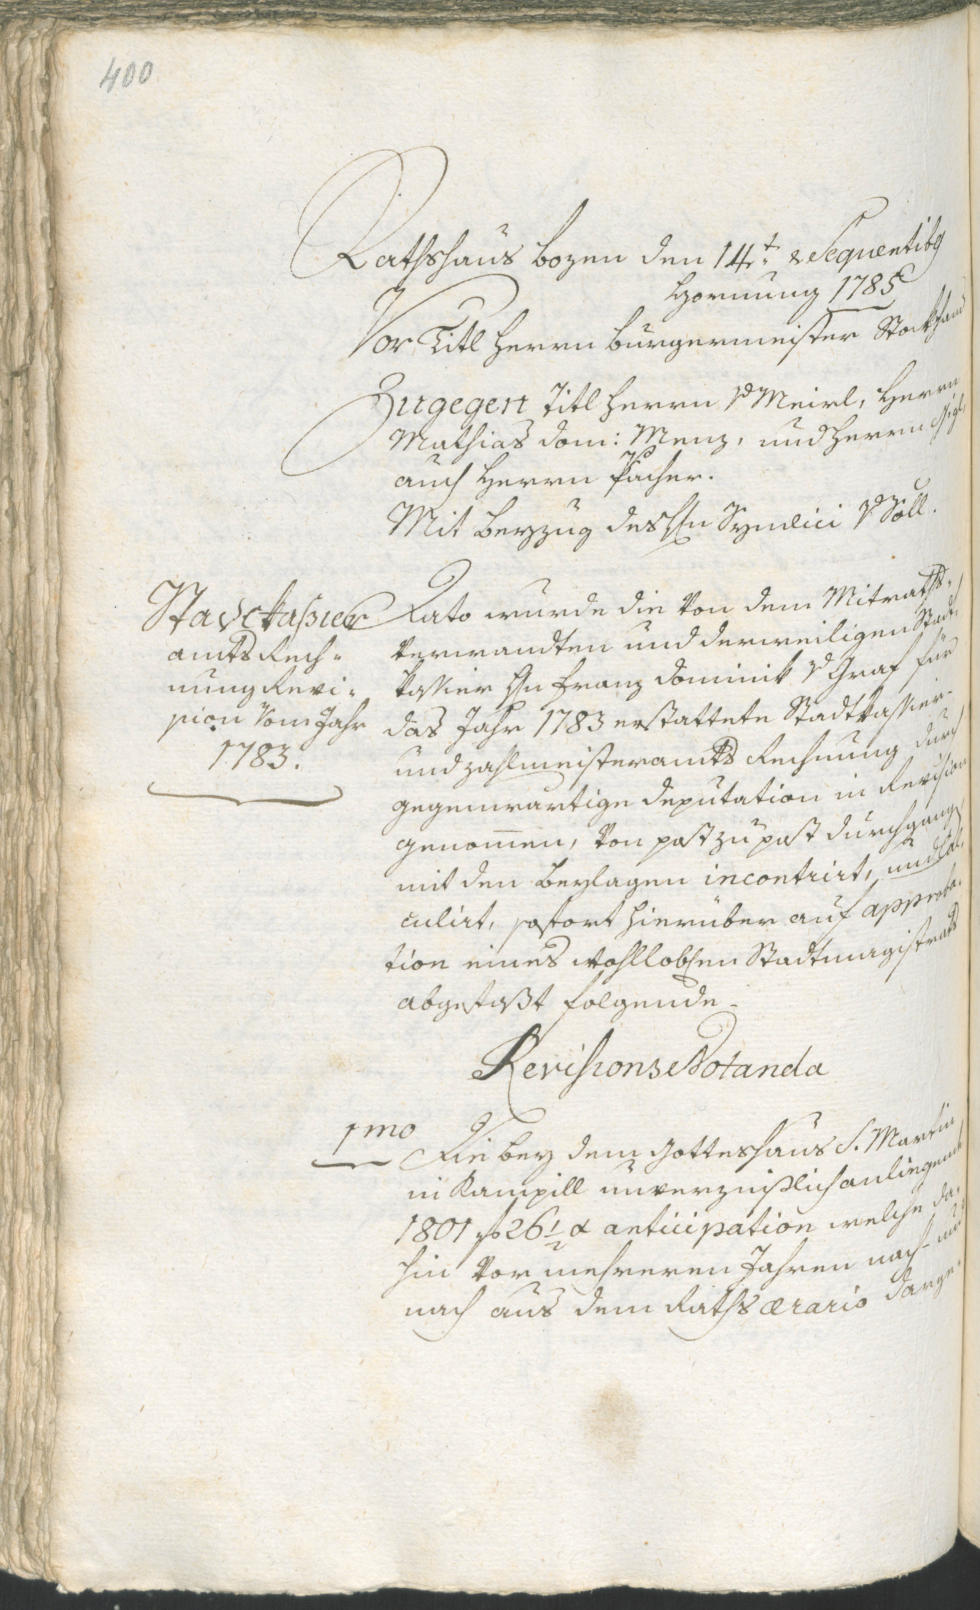 400
Rathshaus Bozen den 14t. & Sequentibg
Hornung 1785
Vor Titl Herrn Bürgermeister Stockha
Zugegen Titl Herrn v Meirl, Herrn
Mathias Dom: Menz, und Herrn
auch Herrn Pacher.
Mit Beyzug des Hn Syndici v Söll.
StadtKaßier
amts Rech=
nung Revi=
sion Vom Jahr
1783.
Dato wurde die von dem Mitraths=
verwandten und derweiligen Stadt
kassier Hn Franz Dominik v Graf für
das Jahr 1783 erstattete Stadtkassier-
und Zahlmeisteramts Rechnung durch
gegenwärtige Deputation in Revision
genommen, von post zu post durchgang
mit den Beylagen incontrirt, und Cal,
culirt, sofort hierüber auf approba,
tion eines wohlloblen Stadtmagistrats
abgefaßt folgende
Revisions Notanda
1mo
Die bey dem Gotteshaus S. Martin
in Kampill unverzinßlich anliegende
1801 f 26½ x anticipation welche da,
hin vor mehreren Jahren nach- und
nach aus dem Raths ærario darge,